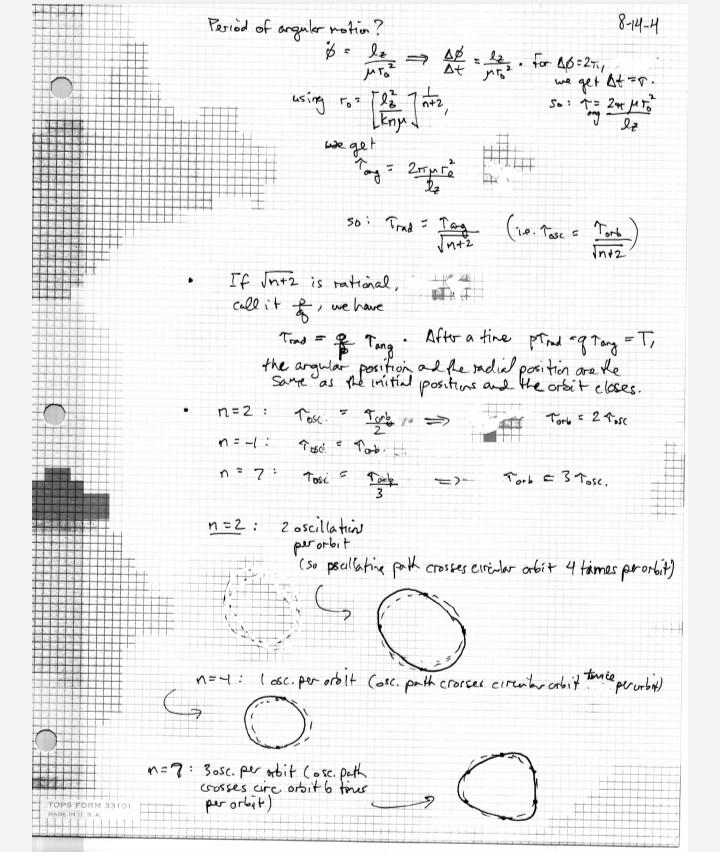 8-14-4
Period of angular motion?
φ̇ = l_z / μr₀² ⟹ Δφ/Δt = l_z / μr₀² . For Δφ=2π,
we get Δt = τ.
so: τ_ang = 2π μr₀² / l_z
using r₀ = [l_z² / knμ]^(1/(n+2)),
we get
τ_ang = 2πμr₀² / l_z
so: τ_rad = τ_ang / √n+2 (i.e. τ_osc = τ_orb / √n+2)
• If √n+2 is rational,
call it p/q, we have
τ_rad = q/p τ_ang . After a time pτ_rad = qτ_ang = T,
the angular position and the radial position are the
same as the initial positions and the orbit closes.
• n=2 : τ_osc = τ_orb / 2 ⟹ τ_orb = 2 τ_osc
n=-1 : τ_osc = τ_orb.
n=7 : τ_osc = τ_orb / 3 ⟹ τ_orb = 3 τ_osc.
n=2 : 2 oscillations
per orbit
(so oscillating path crosses circular orbit 4 times per orbit)
n=-1 : 1 osc. per orbit (osc. path crosses circular orbit twice per orbit)
n=7 : 3 osc. per orbit (osc. path
crosses circ orbit 6 times
per orbit)
TOPS FORM 33101
MADE IN U. S. A.